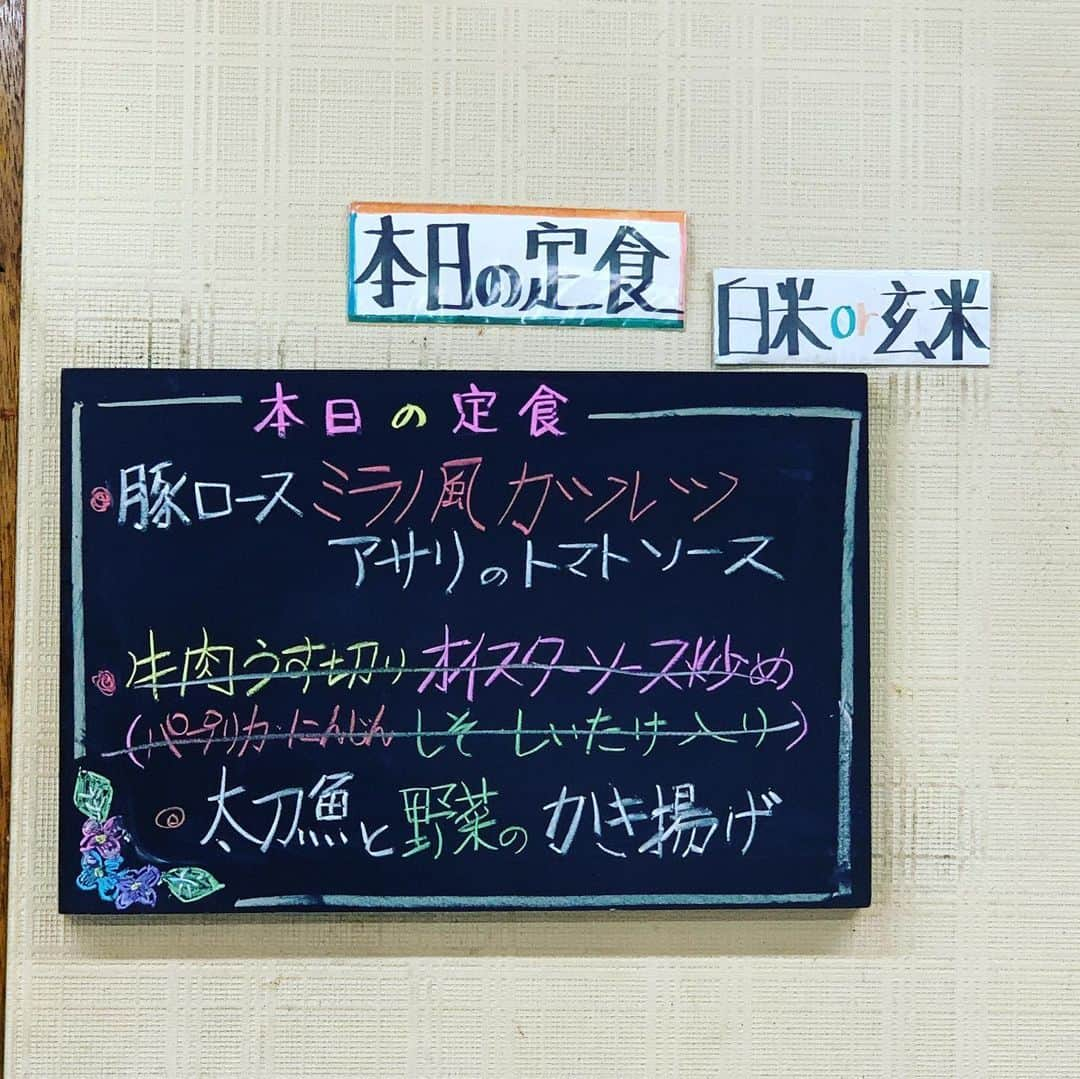 本日の定食
白米or玄米
本日の定食
豚ロースミラノ風カツレツ
アサリのトマトソース
牛肉うす切りオイスターソース炒め
(パプリカ・にんじん しそ しいたけ入り)
太刀魚と野菜のかき揚げ